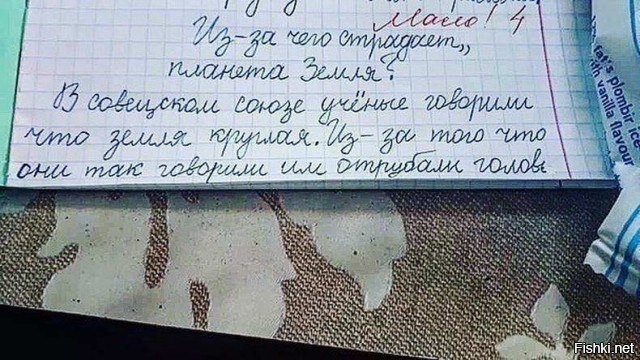 Мало! 4
Из-за чего страдает,,
планета Земля?
В совецском союзе учёные говорили
что земля круглая. Из-за того что
они так говорили им отрубали голов
fat's plombir ice
with vanilla flavour
Fishki.net